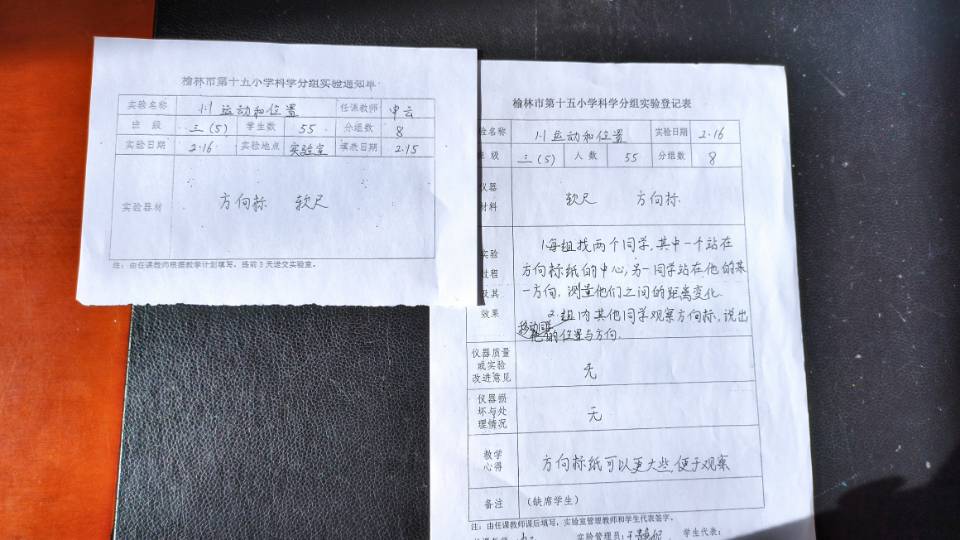 榆林市第十五小学科学分组实验通知单
实验名称 1.1 运动和位置 任课教师 申云
班 级 三(5) 学生数 55 分组数 8
实验日期 2.16 实验地点 实验室 填表日期 2.15
实验器材 方向标 软尺
注：由任课教师根据教学计划填写，提前3天送交实验室。
榆林市第十五小学科学分组实验登记表
验名称 1.1 运动和位置 实验日期 2.16
班 级 三(5) 人 数 55 分组数 8
仪器
材料
软尺 方向标
实验
过程
及其
效果
1.每组找两个同学,其中一个站在
方向标纸的中心,另一同学站在他的某
一方向,测量他们之间的距离变化
2.组内其他同学观察方向标,说出
的位置与方向.
仪器质量
或实验
改进意见
无
仪器损
坏与处
理情况
无
教学
心得
方向标纸可以更大些,便于观察
备注 （缺席学生）
注：由任课教师课后填写，实验室管理教师和学生代表签字。
实验管理员: 学生代表: